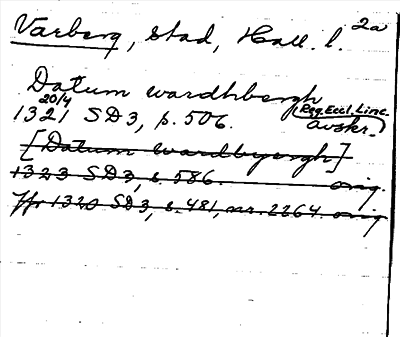 Varberg, stad, Hall. l. 2a
Datum wardhbergh
20/4 (Reg. Eccl. Linc.
1321 SD 3, s. 506. avskr.)
[Datum wardbyergh]
1323 SD 3, s. 586. orig.
Jfr 1320 SD 3, s. 481, nr. 2264. orig